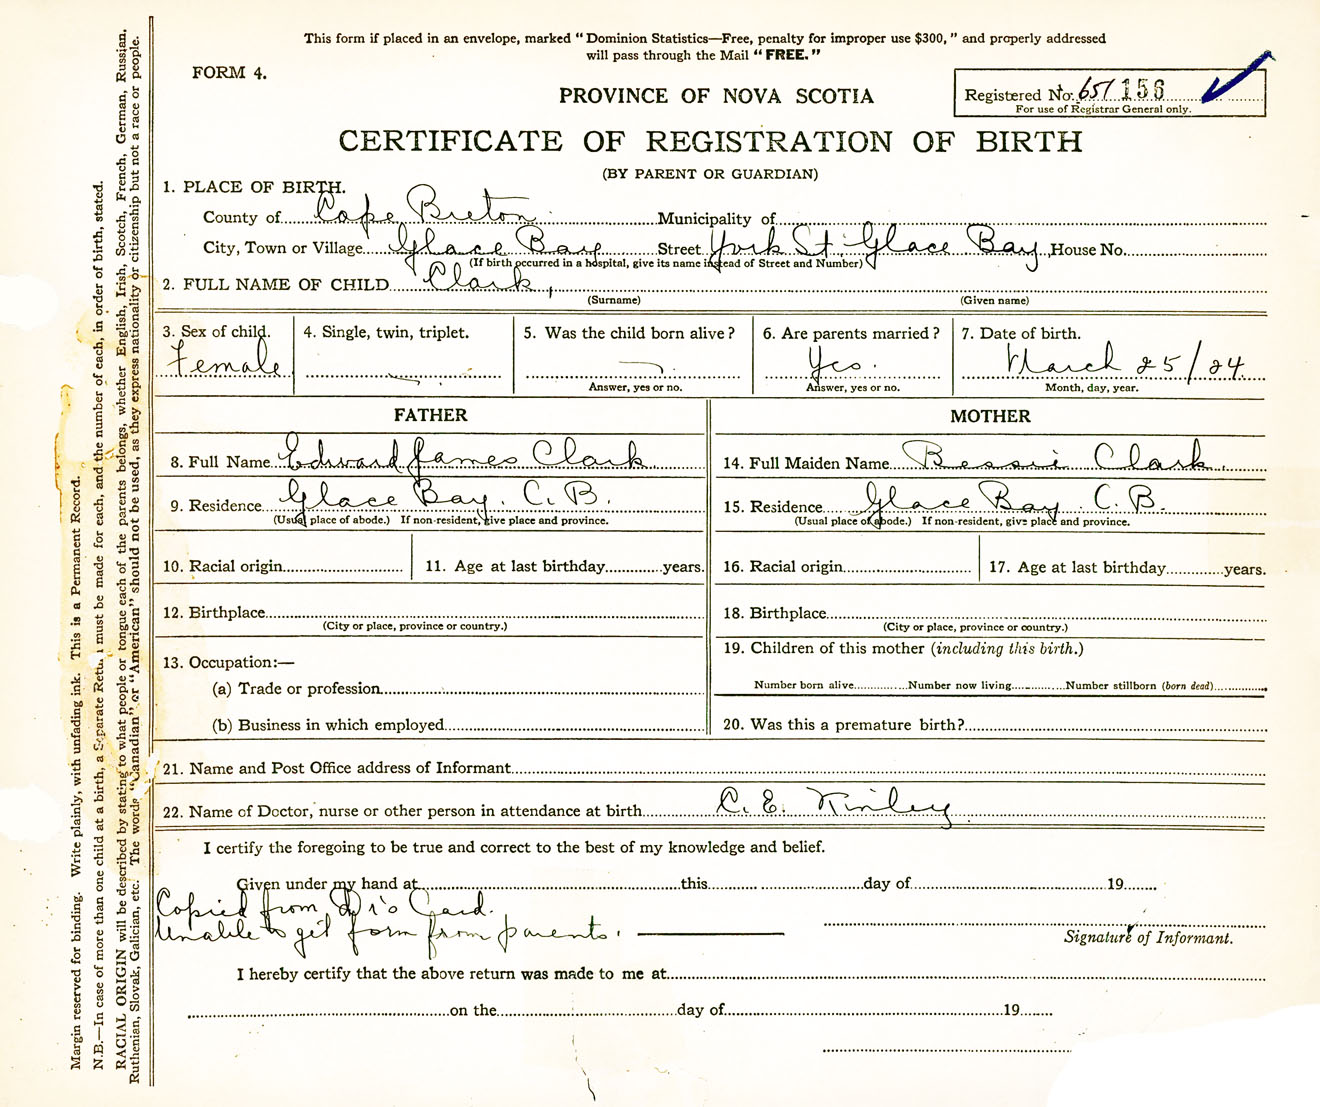 This form if placed in an envelope, marked "Dominion Statistics—Free, penalty for improper use $300," and properly addressed
will pass through the Mail "FREE."
FORM 4.
Registered No. 651 156
For use of Registrar General only.
PROVINCE OF NOVA SCOTIA
CERTIFICATE OF REGISTRATION OF BIRTH
(BY PARENT OR GUARDIAN)
1. PLACE OF BIRTH.
County of Cape Breton Municipality of
City, Town or Village Glace Bay Street York St. Glace Bay, House No.
(If birth occurred in a hospital, give its name instead of Street and Number)
2. FULL NAME OF CHILD Clark,
(Surname) (Given name)
3. Sex of child. 4. Single, twin, triplet. 5. Was the child born alive? 6. Are parents married? 7. Date of birth.
Female Yes. March 25/24.
Answer, yes or no. Answer, yes or no. Month, day, year.
FATHER MOTHER
8. Full Name Edward James Clark 14. Full Maiden Name Bessie Clark.
9. Residence Glace Bay. C. B. 15. Residence Glace Bay. C. B.
(Usual place of abode.) If non-resident, give place and province. (Usual place of abode.) If non-resident, give place and province.
10. Racial origin 11. Age at last birthday years. 16. Racial origin 17. Age at last birthday years.
12. Birthplace 18. Birthplace
(City or place, province or country.) (City or place, province or country.)
13. Occupation:— 19. Children of this mother (including this birth.)
(a) Trade or profession Number born alive Number now living Number stillborn (born dead)
(b) Business in which employed 20. Was this a premature birth?
21. Name and Post Office address of Informant
22. Name of Doctor, nurse or other person in attendance at birth C. E. Kinley
I certify the foregoing to be true and correct to the best of my knowledge and belief.
Given under my hand at this day of 19
Copied from Dr's Card.
Unable to get form from parents.
Signature of Informant.
I hereby certify that the above return was made to me at
on the day of 19
Margin reserved for binding. Write plainly, with unfading ink. This is a Permanent Record.
N.B.—In case of more than one child at a birth, a Separate Return must be made for each, and the number of each, in order of birth, stated.
RACIAL ORIGIN will be described by stating to what people or tongue each of the parents belongs, whether English, Irish, Scotch, French, German, Russian,
Ruthenian, Slovak, Galician, etc. The words "Canadian" or "American" should not be used, as they express nationality or citizenship but not a race or people.